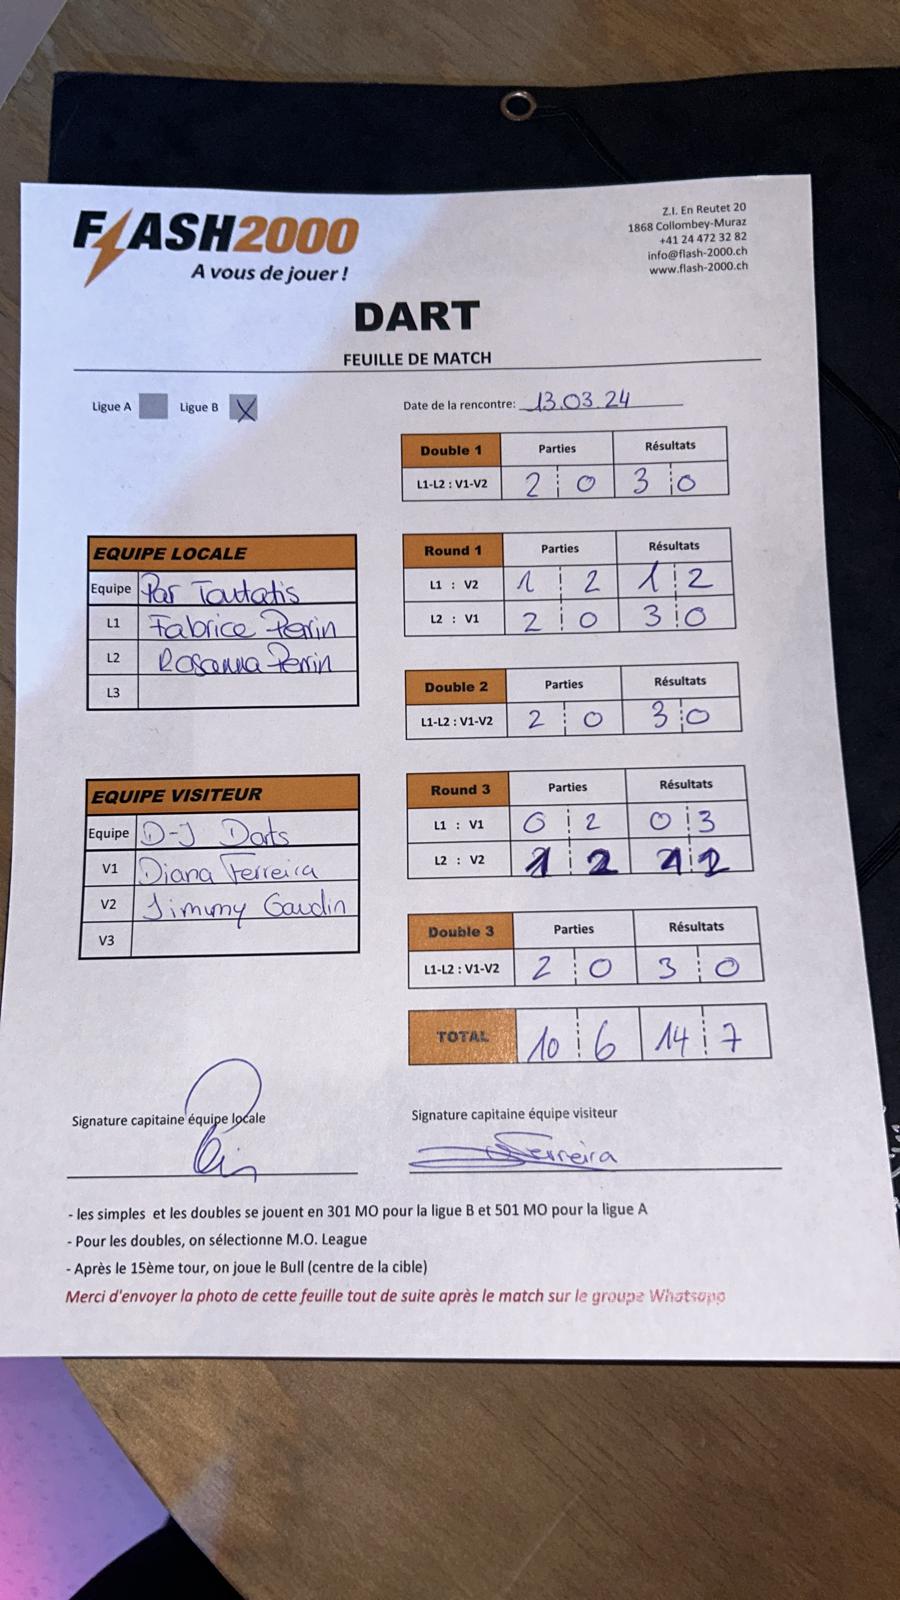 FLASH2000
A vous de jouer !
Z.I. En Reutet 20
1868 Collombey-Muraz
+41 24 472 32 82
info@flash-2000.ch
www.flash-2000.ch
DART
FEUILLE DE MATCH
Ligue A Ligue B X
Date de la rencontre: 13.03.24
Double 1 Parties Résultats
L1-L2 : V1-V2 2 0 3 0
EQUIPE LOCALE
Equipe Par Toutatis
L1 Fabrice Perrin
L2 Rosanna Perrin
L3
Round 1 Parties Résultats
L1 : V2 1 2 1 2
L2 : V1 2 0 3 0
Double 2 Parties Résultats
L1-L2 : V1-V2 2 0 3 0
EQUIPE VISITEUR
Equipe D-J Darts
V1 Diana Ferreira
V2 Jimmy Gaudin
V3
Round 3 Parties Résultats
L1 : V1 0 2 0 3
L2 : V2 1 2 1 2
Double 3 Parties Résultats
L1-L2 : V1-V2 2 0 3 0
TOTAL 10 6 14 7
Signature capitaine équipe locale
Signature capitaine équipe visiteur
Ferreira
- les simples et les doubles se jouent en 301 MO pour la ligue B et 501 MO pour la ligue A
- Pour les doubles, on sélectionne M.O. League
- Après le 15ème tour, on joue le Bull (centre de la cible)
Merci d'envoyer la photo de cette feuille tout de suite après le match sur le groupe Whatsapp